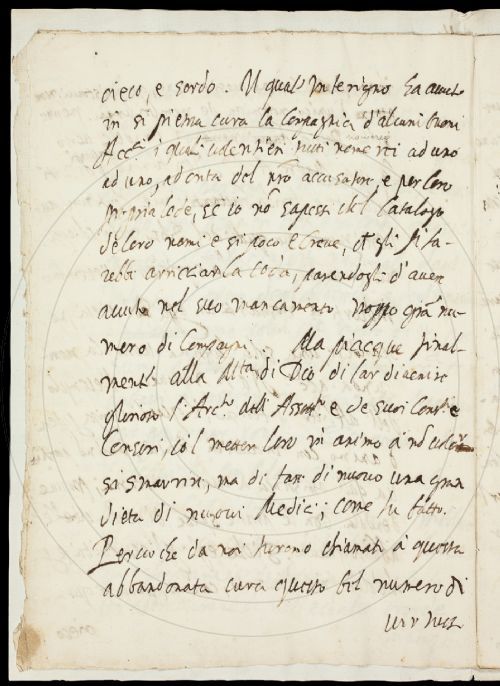 cieco, e sordo. Il qual' Intrigno ha avuto
in sì pietosa cura la Compagnia d'alcuni buoni
Acc.i i quali valentieri tutti nomerei ad uno
ad uno, ad onta del nr̃o accusatore, e per loro
propria lode, se io nõ sapessi che'l Catalogo
de loro nomi è sì poco breve, ch'egli si fa-
rebbe arricciar la coda, parendogli d'aver
avuto nel suo mancamento troppo grã nu-
mero di Compagni. Ma piacque final-
mente alla Mtà di Dio di far divenire
glorioso l'Arc.o degli e de suoi e
Censori, col metter loro in animo di nõ
si smarrire, ma di fare di nuovo una gran
dieta di nuovi Medici; come fu fatto.
Percioche da noi furono chiamati à questa
abbandonata cura questo bel numero di